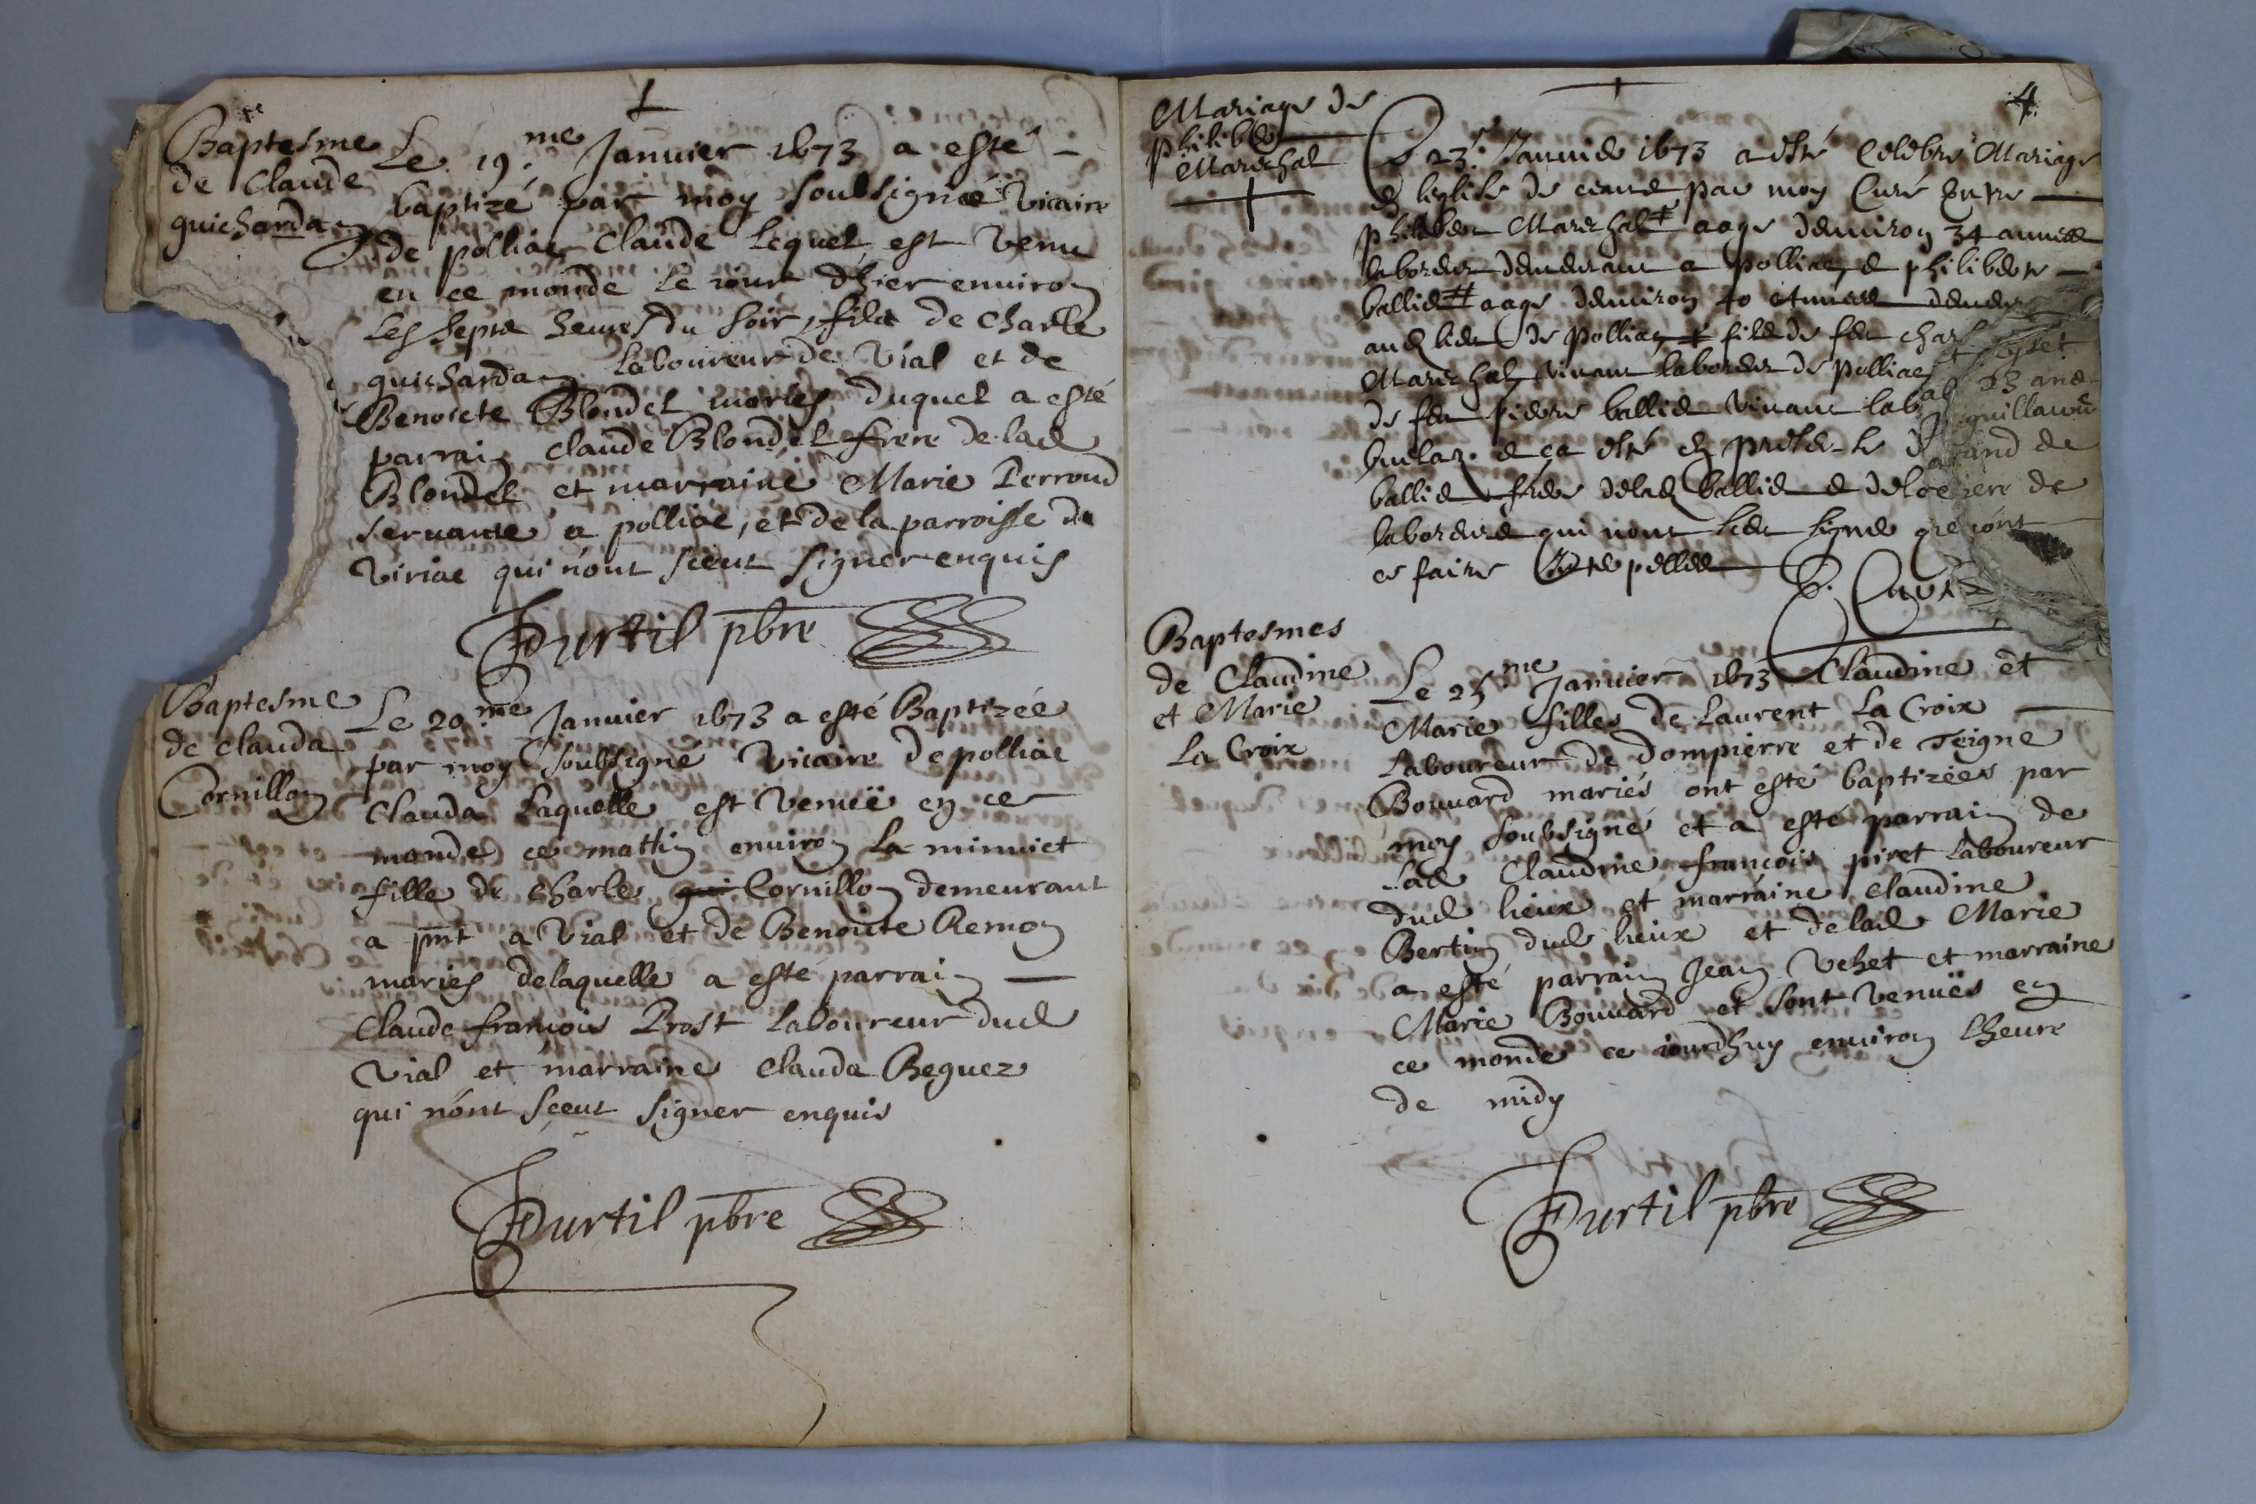 Baptesme
de Claude
guichardan
Le 19.me Januier 1673 a esté
baptizé par moy soubsigné Vicaire
de polliac Claude lequel est venu
en ce monde le iour d'hier enuiron
les sept heures du soir, filz de Charle
guichardan laboureur de Vial et de
Benoiete Blondel mariés, duquel a esté
parrain Claude Blondel frere de lad
Blondel et marraine Marie Perroud
seruante a polliac, et de la parroisse de
Viriac qui n'ont sceut signer enquis
Durtil pbre
Baptesme
de Clauda
Cornillon
Le 20.me Januier 1673 a esté Baptizée
par moy soubsigné Vicaire de polliac
Clauda laquelle est venuë en ce
monde ce mattin enuiron la minuiet
fille de Charle gui Cornillon demeurant
a pnt a Vial et de Benoite Remon
mariés delaquelle a esté parrain
Claude françois Prost laboureur dud
Vial et marraine Clauda Beguez
qui n'ont sceut signer enquis
Durtil pbre
4.
Mariage de
philibert
Marechal
Ce 23.e Januier 1673 a esté Celebré Mariage
en leglise de ceans par moy Curé Entre
philibert Marechal aagé denuiron 34 années
laboreur demeurant a Polliac, & philiberte
ballied aagé denuiron 40 années
aud lieu de Polliac filz de feu
Marechal viuant laboreur de Polliac
de feu pierre ballied viuant
guillaume
ballied frere delad ballied &
laboreurs qui nont sceu signer
ce faire Interpellés
Baptesmes
de Claudine
et Marie
La Croix
Le 25.me Januier 1673 Claudine et
Marie filles de Laurent La Croix
Laboureur de Dompierre et de Teigne
Bouuard mariés ont esté baptizées par
moy soubsigné et a esté parrain de
lad Claudine françois piret laboureur
dud lieux et marraine Claudine
Bertin dud lieux et delad Marie
a esté parrain Jean Vehet et marraine
Marie Bouuard et sont venuës en
ce monde ce iourdhuy enuiron lheure
de midy
Durtil pbre